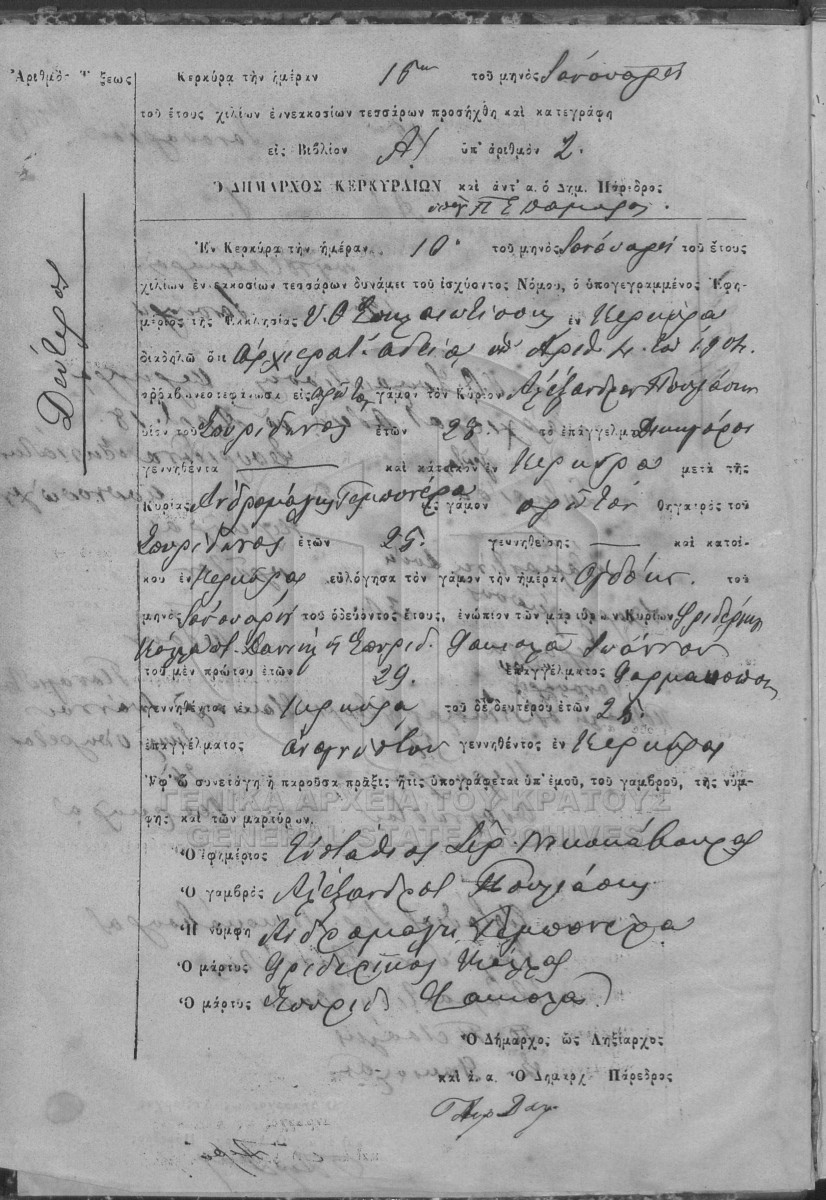 Ἀριθμὸ ξεως Κερκύρα τὴν ἡμέραν 16ην τοῦ μηνὸς Ἰανουαρίου
τοῦ ἔτους χιλίων ἐννεακοσίων τεσσάρων προσήχθη καὶ κατεγράφη
εἰς Βιβλίον Α! ὑπ' ἀριθμὸν 2.
Ὁ ΔΗΜΑΡΧΟΣ ΚΕΡΚΥΡΑΙΩΝ καὶ ἀντ' α. ὁ Δημ. Πάρεδρος
Δεύτερος
Ἐν Κερκύρα τὴν ἡμέραν 10 τοῦ μηνὸς Ἰανουαρίου τοῦ ἔτους
χιλίων ἐννεακοσίων τεσσάρων δυνάμει τοῦ ἰσχύοντος Νόμου, ὁ ὑπογεγραμμένος Ἐφη-
μέριος τῆς Ἐκκλησίας Υ.Θ. Σπηλαιωτίσσης ἐν Κερκύρᾳ
διαδηλῶ ὅτι Ἀρχιερατ. ἀδείᾳ ὑπ' Ἀριθ. 4. τοῦ 1904.
ἀρραβωνεστεφάνωσα εἰς πρῶτον γάμον τὸν Κύριον Ἀλέξανδρον Πουλιάσην
υἱὸν τοῦ Σπυρίδωνος ἐτῶν 28. τὸ ἐπάγγελμα Δικηγόρον
γεννηθέντα καὶ κάτοικον ἐν Κερκύρᾳ μετὰ τῆς
Κυρίας Ἀνδρομάχης Τεμπονέρα εἰς γάμον πρῶτον θηγατρὸς τοῦ
Σπυρίδωνος ἐτῶν 25. γεννηθείσης καὶ κατοί-
κου ἐν Κερκύρᾳ εὐλόγησα τὸν γάμον τὴν ἡμέραν Ὀγδόην. τοῦ
μηνὸς Ἰανουαρίου τοῦ ὁδεύοντος ἔτους, ἐνώπιον τῶν μαρτύρων Κυρίων Φριδερίκου
Κόλλα Δανιὴλ ἢ Σπυρίδ. Ἰωάννου
τοῦ μὲν πρώτου ἐτῶν 29. ἐπαγγέλματος Φαρμακοποιοῦ
γεννηθέντος ἐν Κερκύρᾳ τοῦ δὲ δευτέρου ἐτῶν 25.
ἐπαγγέλματος ἀναγνώστου γεννηθέντος ἐν Κερκύρᾳ
Ἐφ' ᾧ συνετάγη ἡ παροῦσα πρᾶξις ἥτις ὑπογράφεται ὑπ' ἐμοῦ, τοῦ γαμβροῦ, τῆς νύμ-
φης καὶ τῶν μαρτύρων.
ΓΕΝΙΚΑ ΑΡΧΕΙΑ ΤΟΥ ΚΡΑΤΟΥΣ
GENERAL STATE ARCHIVES
Ὁ ἐφημέριος Εὐστάθιος Ἱερ.
Ὁ γαμβρὸς Ἀλέξανδρος Πουλιάσης
Ἡ νύμφη Ἀνδρομάχη Τεμπονέρα
Ὁ μάρτυς Φριδερῖκος Κόλλας
Ὁ μάρτυς Σπυρίδ.
Ὁ Δήμαρχος ὡς Ληξίαρχος
καὶ ἀ. α. Ὁ Δημαρχ. Πάρεδρος